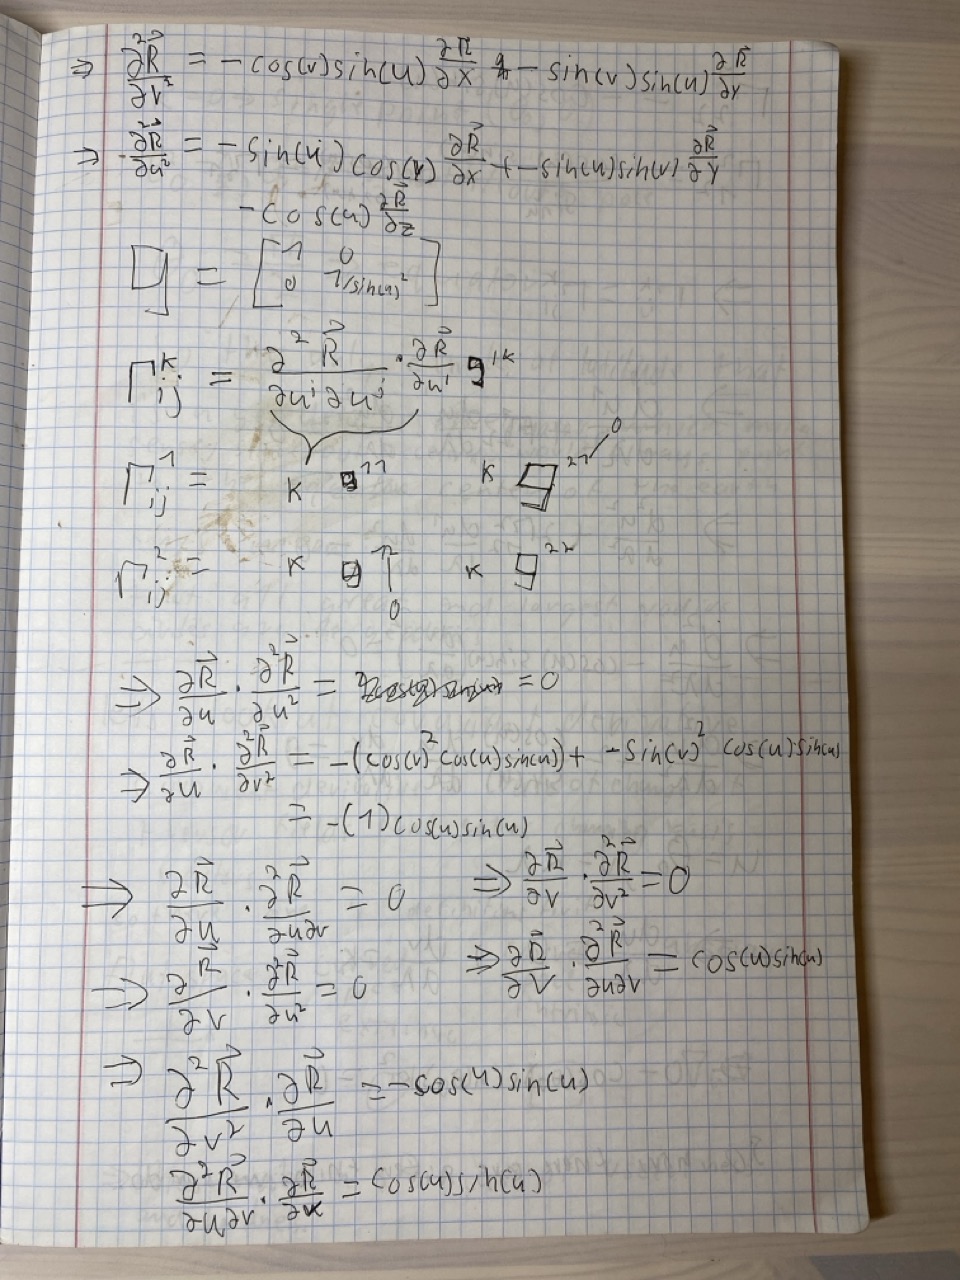 ⇒ ∂²R⃗/∂v² = -cos(v)sin(u) ∂R⃗/∂x + -sin(v)sin(u) ∂R⃗/∂y
⇒ ∂²R⃗/∂u² = -sin(u)cos(v) ∂R⃗/∂x + -sin(u)sin(v) ∂R⃗/∂y
-cos(u) ∂R⃗/∂z
g = [1 0
0 1/sin(u)²]
Γᵏᵢⱼ = ∂²R⃗/∂uⁱ∂uʲ · ∂R⃗/∂uˡ gˡᵏ
Γ¹ᵢⱼ = K g¹¹ K g²¹ 0
Γ²ᵢⱼ = K g¹² 0 K g²²
⇒ ∂R⃗/∂u · ∂²R⃗/∂u² = = 0
⇒ ∂R⃗/∂u · ∂²R⃗/∂v² = -(cos(v)²cos(u)sin(u)) + -sin(v)² cos(u)sin(u)
= -(1)cos(u)sin(u)
⇒ ∂R⃗/∂u · ∂²R⃗/∂u∂v = 0 ⇒ ∂R⃗/∂v · ∂²R⃗/∂v² = 0
⇒ ∂R⃗/∂v · ∂²R⃗/∂u² = 0 ⇒ ∂R⃗/∂v · ∂²R⃗/∂u∂v = cos(u)sin(u)
⇒ ∂²R⃗/∂v² · ∂R⃗/∂u = -cos(u)sin(u)
∂²R⃗/∂u∂v · ∂R⃗/∂v = cos(u)sin(u)